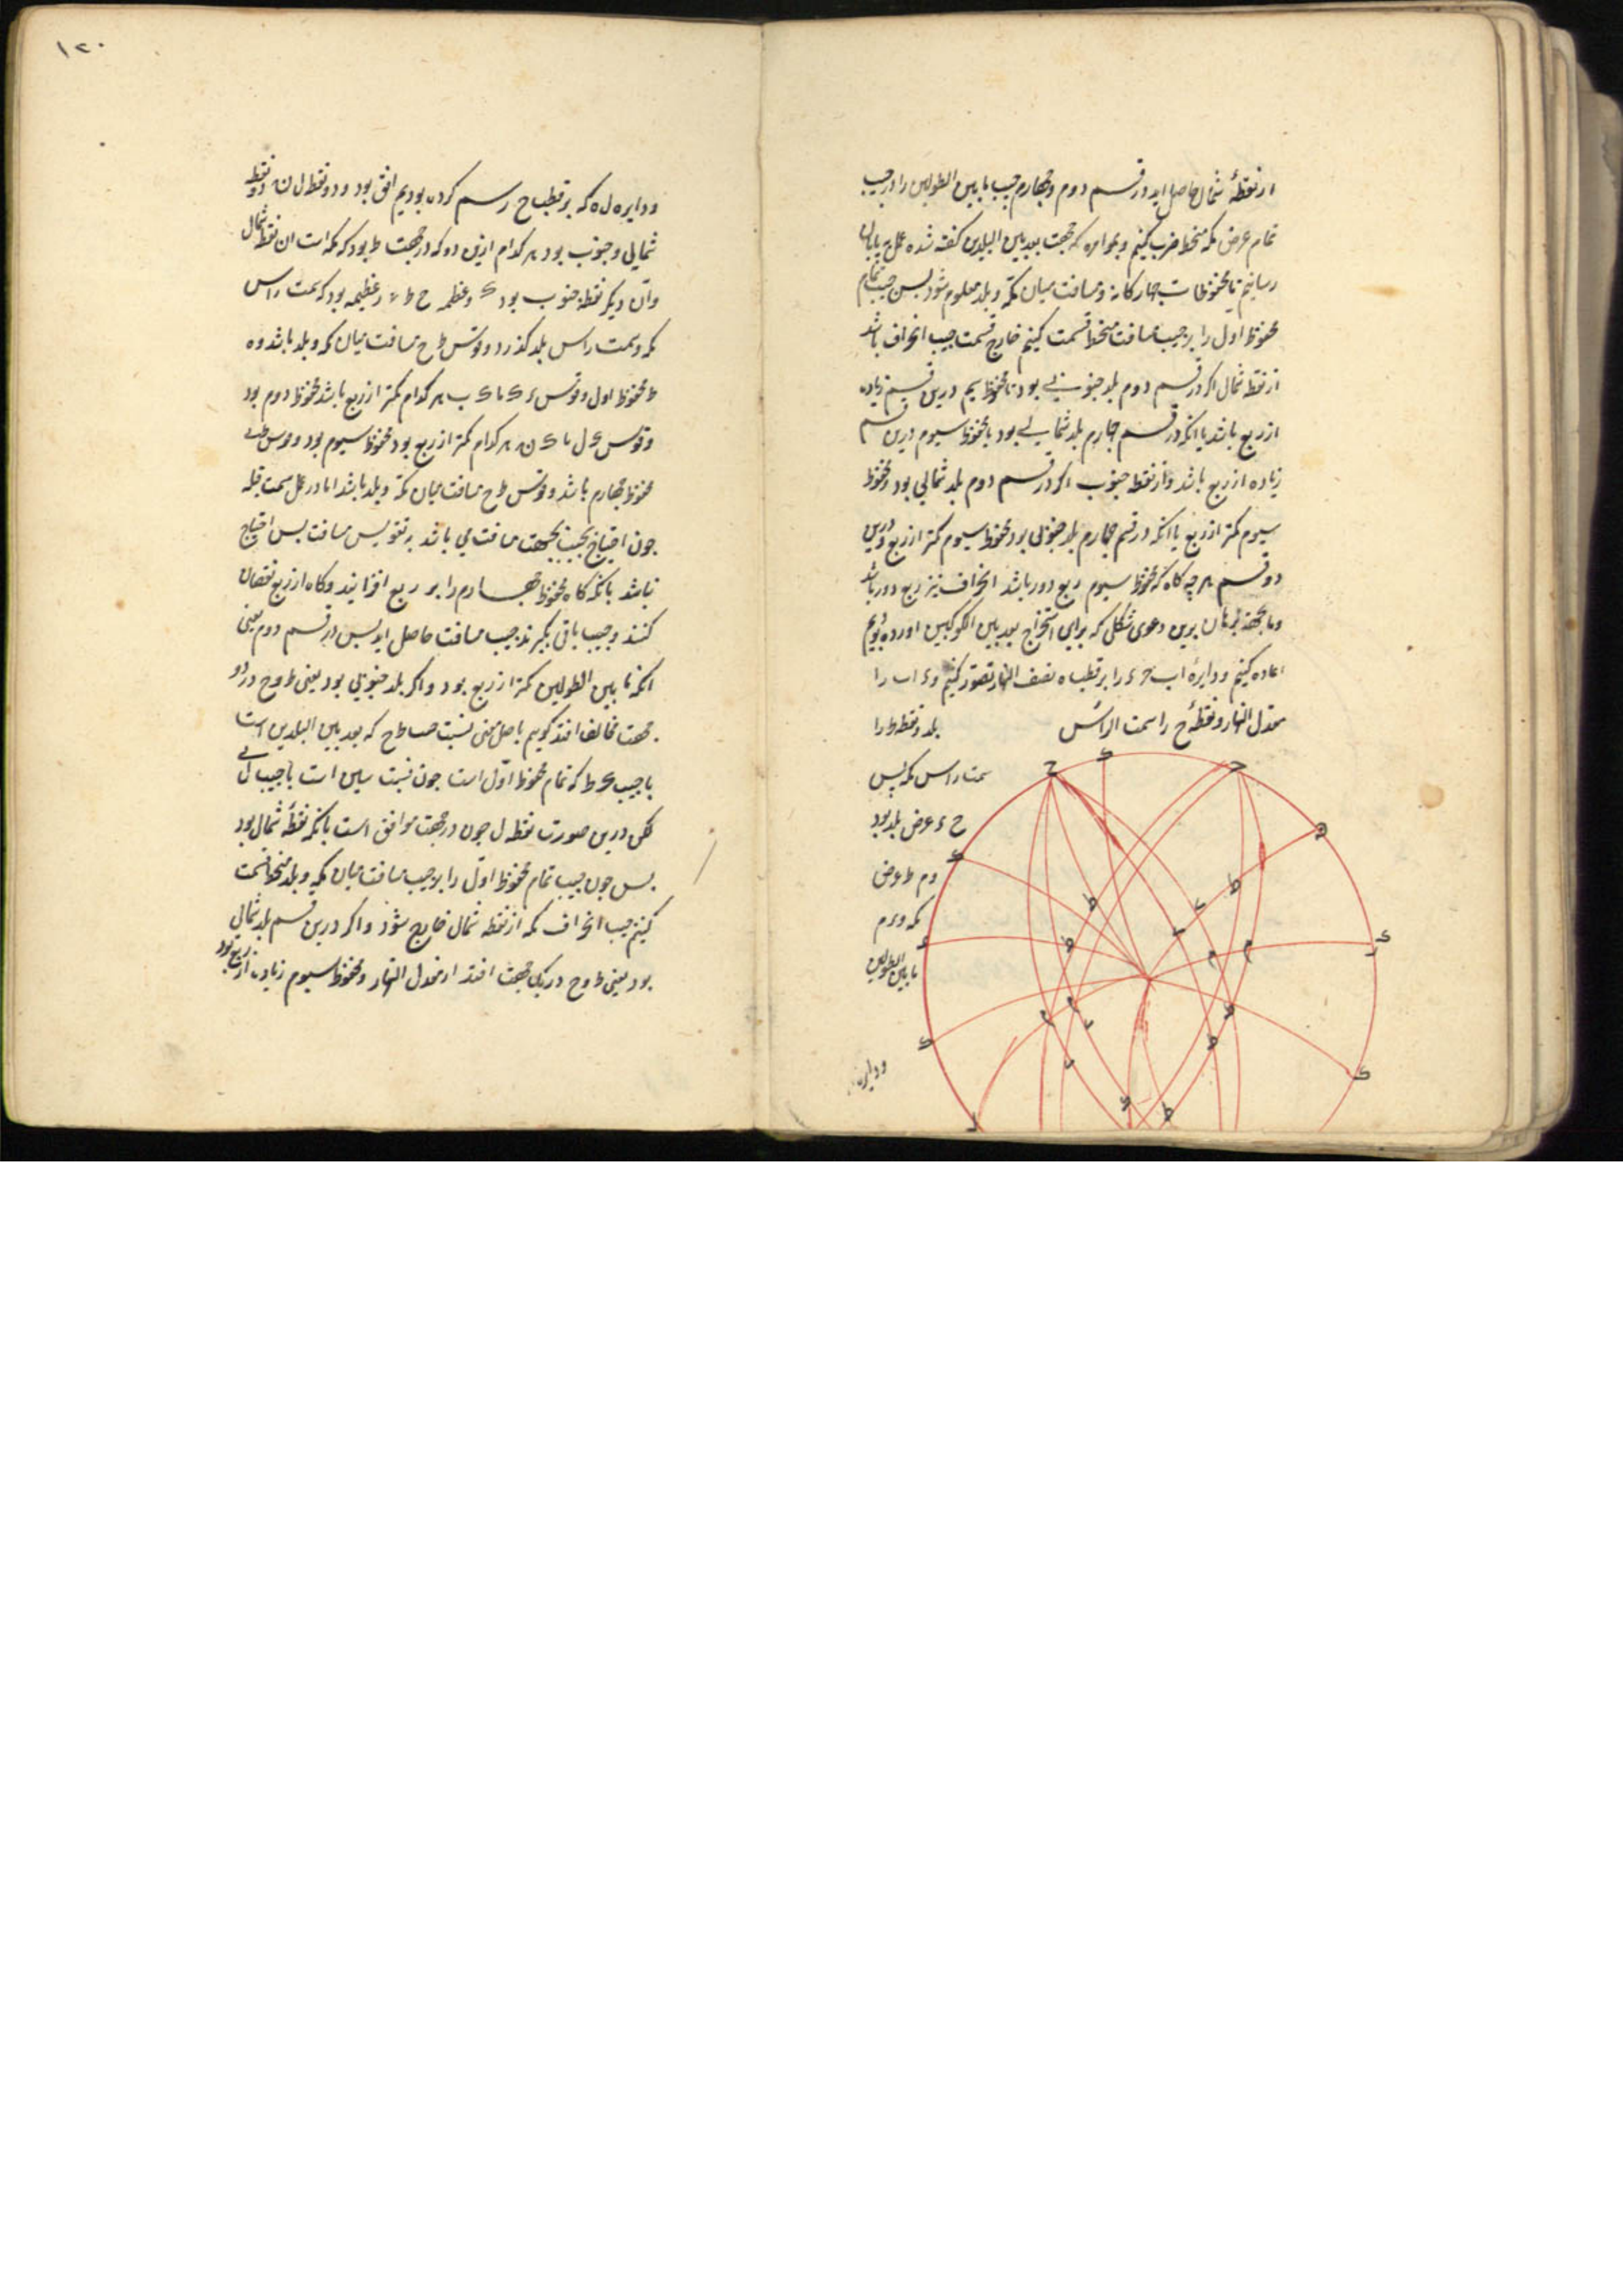 از نقطهٔ شمال حاصل اید و در قسم دوم و چهارم جیب مابین الطولین را در جیب
تمام عرض مکه منحط ضرب کنیم و بموامره که جهت بعد بین البلدین کفته شده عمل بپایان
رسانیم تا محفوظات چهارکانه و مسافت میان مکه و بلد معلوم شود پس جیب تمام
محفوظ اول را بر جیب مسافت منحطا قسمت کنیم خارج قسمت جیب انحراف باشد
از نقطه شمال اکر در قسم دوم بلد جنوبی بود تا محفوظ سیم درین قسم زیاده
از ربع باشد یا انکه در قسم چهارم بلد شمالی بود یا محفوظ سیوم درین قسم
زیاده از ربع باشد و از نقطه جنوب اکر در قسم دوم بلد شمالی بود و محفوظ
سیوم کمتر از ربع یا انکه در قسم چهارم بلد جنوبی بود محفوظ سیوم کمتر از ربع و درین
دو قسم هر چه کاه که محفوظ سیوم ربع دور باشد انحراف نیز ربع دور باشد
وما بجهة برهان برین دعوی شکلی که برای استخراج بعد بین الکوکبین اورده بودیم
اعاده کنیم و دایرهٔ اب ج ء را بر قطب ه نصف النهار تصور کنیم و ء اب را
معدل النهار و نقطهٔ ح را سمت الراس
بلد و نقطه ط را
سمت راس مکه پس
ح ء عرض بلد بود
و م ط عرض
مکه و ء م
ما بین الطولین
و دایره
۱۲۰
و دایره ل ه که بر قطب ح رسم کرده بودیم افق بود و دو نقطه ل ن دو نقطه
شمالی و جنوب بود هر کدام ازین دو که در جهت ط بود که مکه است ان نقطه شمال
وان دیکر نقطه جنوب بود ک و عظمه ح ط عظیمه بود که بسمت راس
مکه و سمت راس بلد کذرد و قوس ط ح مسافت میان مکه و بلد باشد و ه
ط محفوظ اول و قوس ء ک یا ک ب هر کدام کمتر از ربع باشد محفوظ دوم بود
و قوس ک ل یا ک ن هر کدام کمتر از ربع بود محفوظ سیوم بود و قوس
محفوظ چهارم باشد و قوس ط ح مسافت میان مکه و بلد باشد اما در عمل سمت قبله
چون احتیاج بجیب بجهت مسافت می باشد نه تقویس مسافت پس احتیاج
نباشد بانکه کاه محفوظ چهارم را بر ربع افزایند و کاه از ربع نقصان
کنند و جیب باقی بکیرند جیب مسافت حاصل اید پس در قسم دوم یعنی
انکه ما بین الطولین کمتر از ربع بود و اکر بلد جنوبی بود یعنی ط و ح در دو
جهت مخالف افتد کوییم باصل مغنی نسبت جیب ط ح که بعد بین البلدین است
با جیب ط که تمام محفوظ اول است چون نسبت ستین است با جیب ل
لکن درین صورت نقطه ل چون در جهت موافق است بانکه نقطهٔ شمال بود
پس چون جیب تمام محفوظ اول را بر جیب مسافت میان مکه و بلد منحط قسمت
کنیم جیب انحراف مکه از نقطه شمال خارج شود و اکر درین قسم بلد شمالی
بود یعنی ط و ح در یک جهت افتد از معدل النهار و محفوظ سیوم زیاده از ربع بود